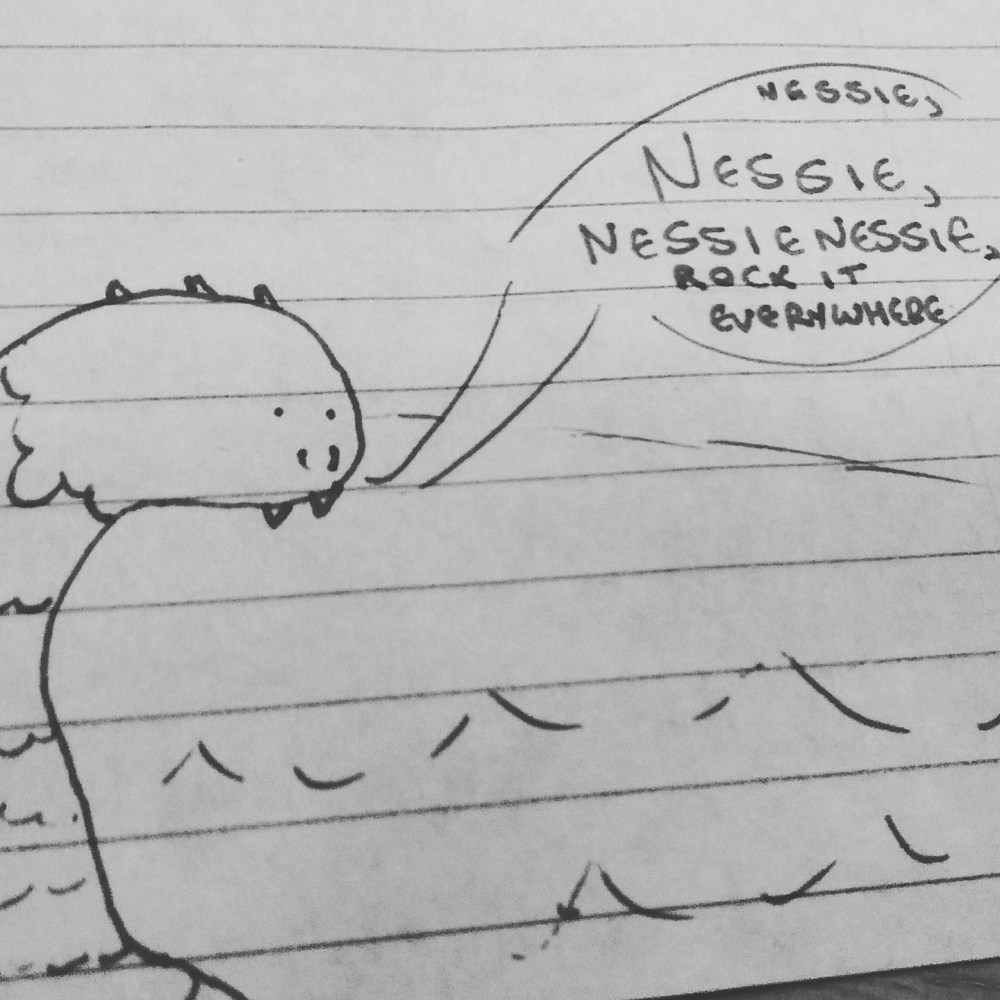 NESSIE,
NESSIE,
NESSIE NESSIE,
ROCK IT
EVERYWHERE